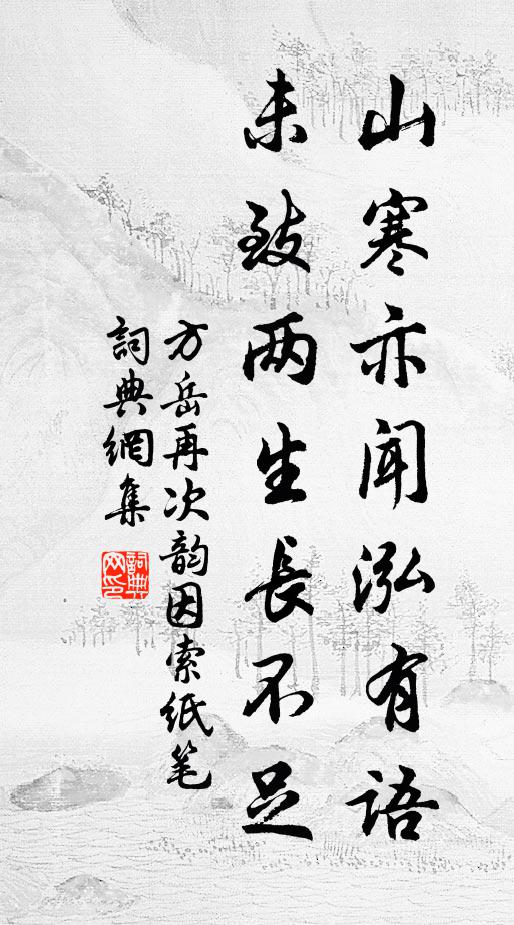 山寒亦闻泓有语
未致两生長不足
方岳再次韵因索纸笔
詞典網集
詞典网印